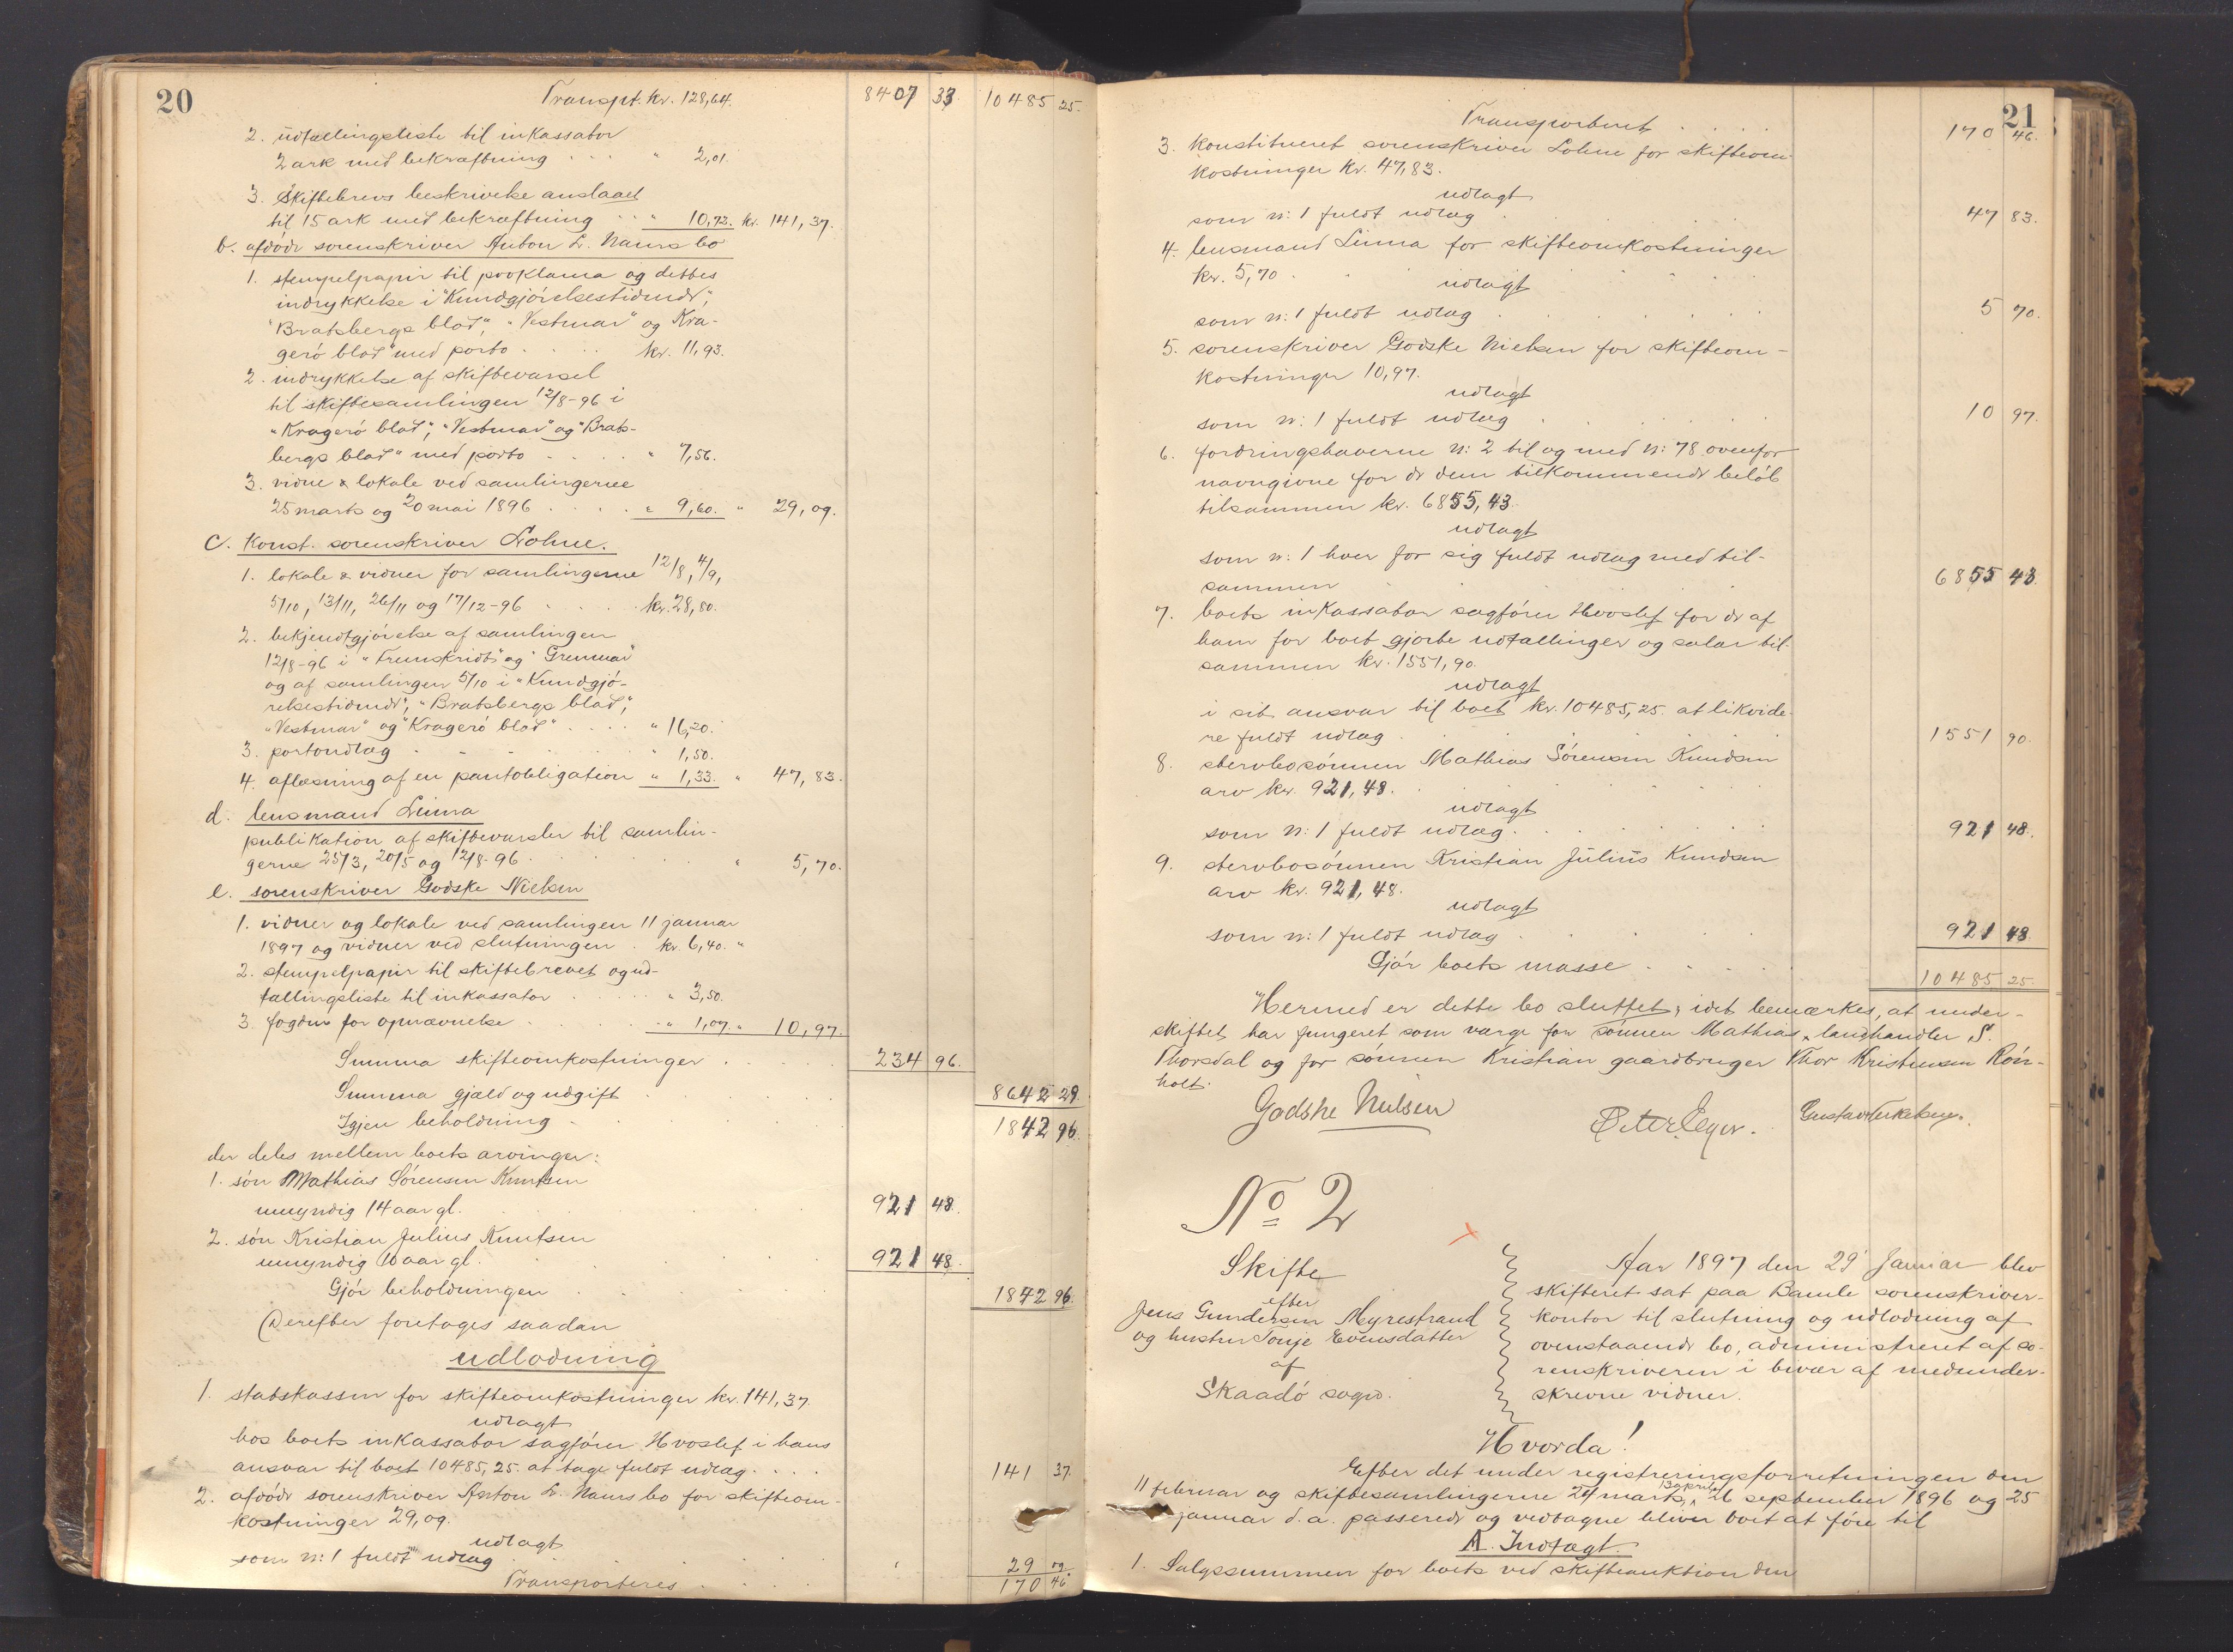 20
Transpt. kr. 128,64. 8407 33 10485 25.
2. udtællingsliste til inkassator
2 ark med bekræftning . . . " 2,01.
3. Skiftebrevs beskrivelse anslaaet
til 15 ark med bekræftning . . " 10,72. kr. 141,37.
b. afdöde sorenskriver Anton L. Naurs bo
1. stempelpapir til proklama og dettes
indrykkelse i "Kundgjörelsestidende",
"Bratsbergs blad", "Vestmar" og Kra-
gerö blad" med porto . . . . kr. 11,93.
2. indrykkelse af skiftevarsel
til skiftesamlingen 12/8-96 i
"Kragerö blad", "Vestmar" og "Brats-
bergs blad" med porto . . . . " 7,56.
3. vidne & lokale ved samlingerne
25 marts og 20 mai 1896 . . . . " 9,60. " 29,09.
c. Konst. sorenskriver Lohne.
1. lokale & vidner for samlingerne 12/8, 4/9,
5/10, 13/11, 26/11 og 17/12-96 . . . . kr. 28,80.
2. bekjendtgjörelse af samlingen
12/8-96 i "Fremskridt" og "Grenmar"
og af samlingen 5/10 i "Kundgjö-
relsestidende", "Bratsbergs blad",
"Vestmar" og "Kragerö blad" . . . . " 16,20.
3. portoudlæg . . . . . . " 1,50.
4. aflæsning af en pantobligation " 1,33. " 47,83.
d. lensmand Linna
publikation af skiftevarsler til samlin-
gerne 25/3, 20/5 og 12/8-96 . . . . . " 5,70.
e. sorenskriver Godske Nielsen
1. vidner og lokale ved samlingen 11 januar
1897 og vidner ved slutningen . kr. 6,40. "
2. stempelpapir til skiftebrevet og ud-
tællingsliste til inkassator . . . . " 3,50.
3. fogden for opnævnelse . . . . " 1,07. " 10,97.
Summa skifteomkostninger . . . . 234 96.
Summa gjæld og udgift . . . . 8642 29.
Igjen beholdning . . . . 1842 96.
der deles mellem boets arvinger:
1. sön Mathias Sörensen Knutsen
umyndig 14 aar gl. . . . . 921 48.
2. sön Kristian Julius Knutsen
umyndig 10 aar gl. . . . . 921 48.
Gjör beholdningen . . . . 1842 96.
Derefter foretages saadan
udlodning
1. statskassen for skifteomkostninger kr. 141,37.
udlagt
hos boets inkassator sagförer Hvoslef i hans
ansvar til boet 10485,25. at tage fuldt udlæg . . . . 141 37.
2. afdöde sorenskriver Anton L. Naurs bo for skifteom-
kostninger 29,09.
udlagt
som n: 1 fuldt udlæg . . . . 29 09
Transporteres . . . . 170 46
21
Transporteret . . . . 170 46.
3. konstitueret sorenskriver Lohne for skifteom-
kostninger kr. 47,83.
udlagt
som n: 1 fuldt udlæg . . . . 47 83.
4. lensmand Linna for skifteomkostninger
kr. 5,70.
udlagt
som n: 1 fuldt udlæg . . . . 5 70.
5. sorenskriver Godske Nielsen for skifteom-
kostninger 10,97.
udlagt
som n: 1 fuldt udlæg . . . . 10 97.
6. fordringshaverne n: 2 til og med n: 78 ovenfor
navngivne for de dem tilkommende belöb
tilsammen kr. 6855,43.
udlagt
som n: 1 hver for sig fuldt udlæg med til-
sammen . . . . 6855 43.
7. boets inkassator sagförer Hvoslef for de af
ham for boet gjorte udtællinger og salær til-
sammen kr. 1551,90.
udlagt
i sit ansvar til boet kr. 10485,25. at likvide-
re fuldt udlæg . . . . 1551 90.
8. stervbosönnen Mathias Sörensen Knudsen
arv kr. 921,48.
udlagt
som n: 1 fuldt udlæg . . . . 921 48.
9. stervbosönnen Kristian Julius Knudsen
arv kr. 921,48.
udlagt
som n: 1 fuldt udlæg . . . . 921 48
Gjör boets masse . . . . 10485 25.
Hermed er dette bo sluttet, idet bemærkes, at under-
skiftet har fungeret som værge for sönnen Mathias, landhandler S.
Thorsdal og for sönnen Kristian gaardbruger Thor Kristensen Rön-
holt.
Godske Nielsen Peter Eger. Gustav Terkelsen.
No 2
Skifte
efter
Jens Gundersen Myrestrand
og hustru Tonje Evensdatter
af
Skaadö sogn.
Aar 1897 den 29' Januar blev
skifteret sat paa Bamle sorenskriver-
kontor til slutning og udlodning af
ovenstaaende bo, administreret af so-
renskriveren i bivær af medunder-
skrevne vidner.
Hvorda!
Efter det under registreringsforretningen den
11 februar og skiftesamlingerne 24 marts, 13 april, 26 september 1896 og 25
januar d.a. passerede og vedtagne bliver boet at före til
A. Indtægt.
1. Salgssummen for boets ved skifteauktion den